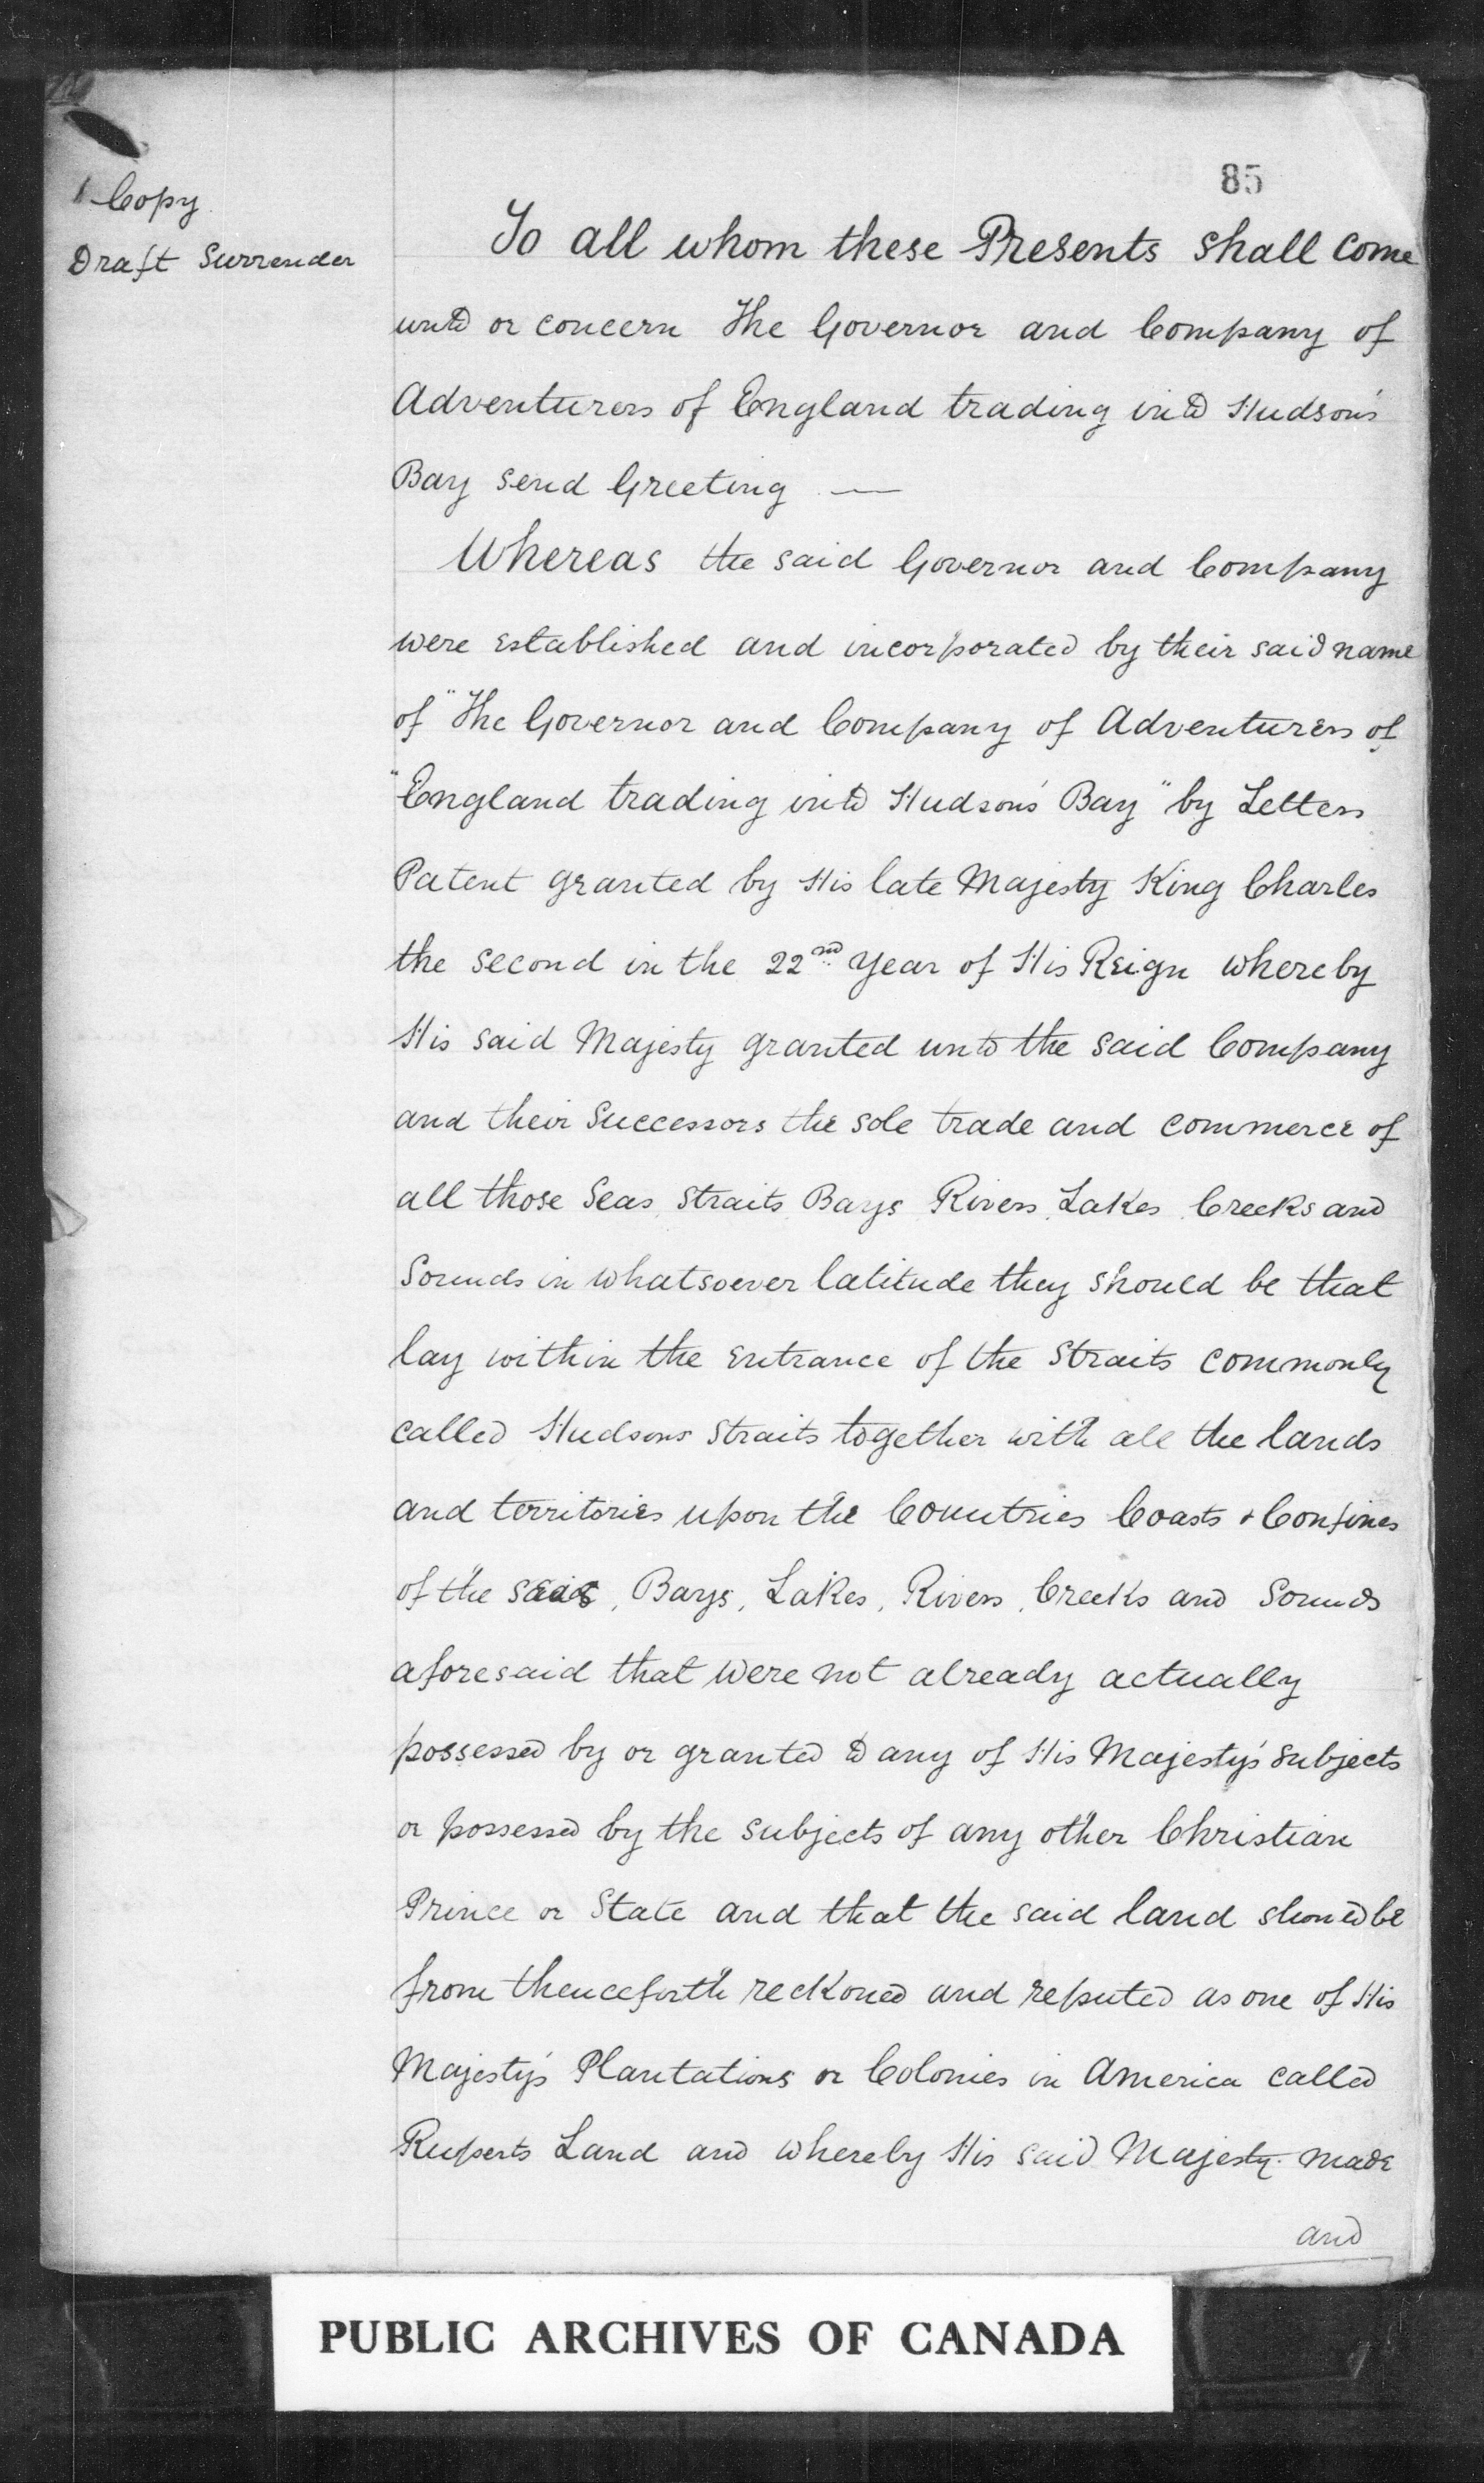 85
1 Copy
Draft Surrender
To all whom these Presents shall come
unto or concern The Governor and Company of
Adventurers of England trading into Hudson's
Bay send Greeting —
Whereas the said Governor and Company
were established and incorporated by their said name
of "The Governor and Company of Adventurers of
"England trading into Hudson's Bay" by Letters
Patent granted by His late Majesty King Charles
the second in the 22nd year of His Reign whereby
His said Majesty granted unto the said Company
and their Successors the sole trade and commerce of
all those Seas, Straits, Bays, Rivers, Lakes, Creeks and
Sounds in whatsoever latitude they should be that
lay within the entrance of the Straits commonly
called Hudsons Straits together with all the lands
and territories upon the Countries Coasts & Confines
of the Seas, Bays, Lakes, Rivers, Creeks and Sounds
aforesaid that were not already actually
possessed by or granted to any of His Majesty's subjects
or possessed by the subjects of any other Christian
Prince or State and that the said land should be
from thenceforth reckoned and reputed as one of His
Majesty's Plantations or Colonies in America called
Ruperts Land and whereby His said Majesty made
and
PUBLIC ARCHIVES OF CANADA